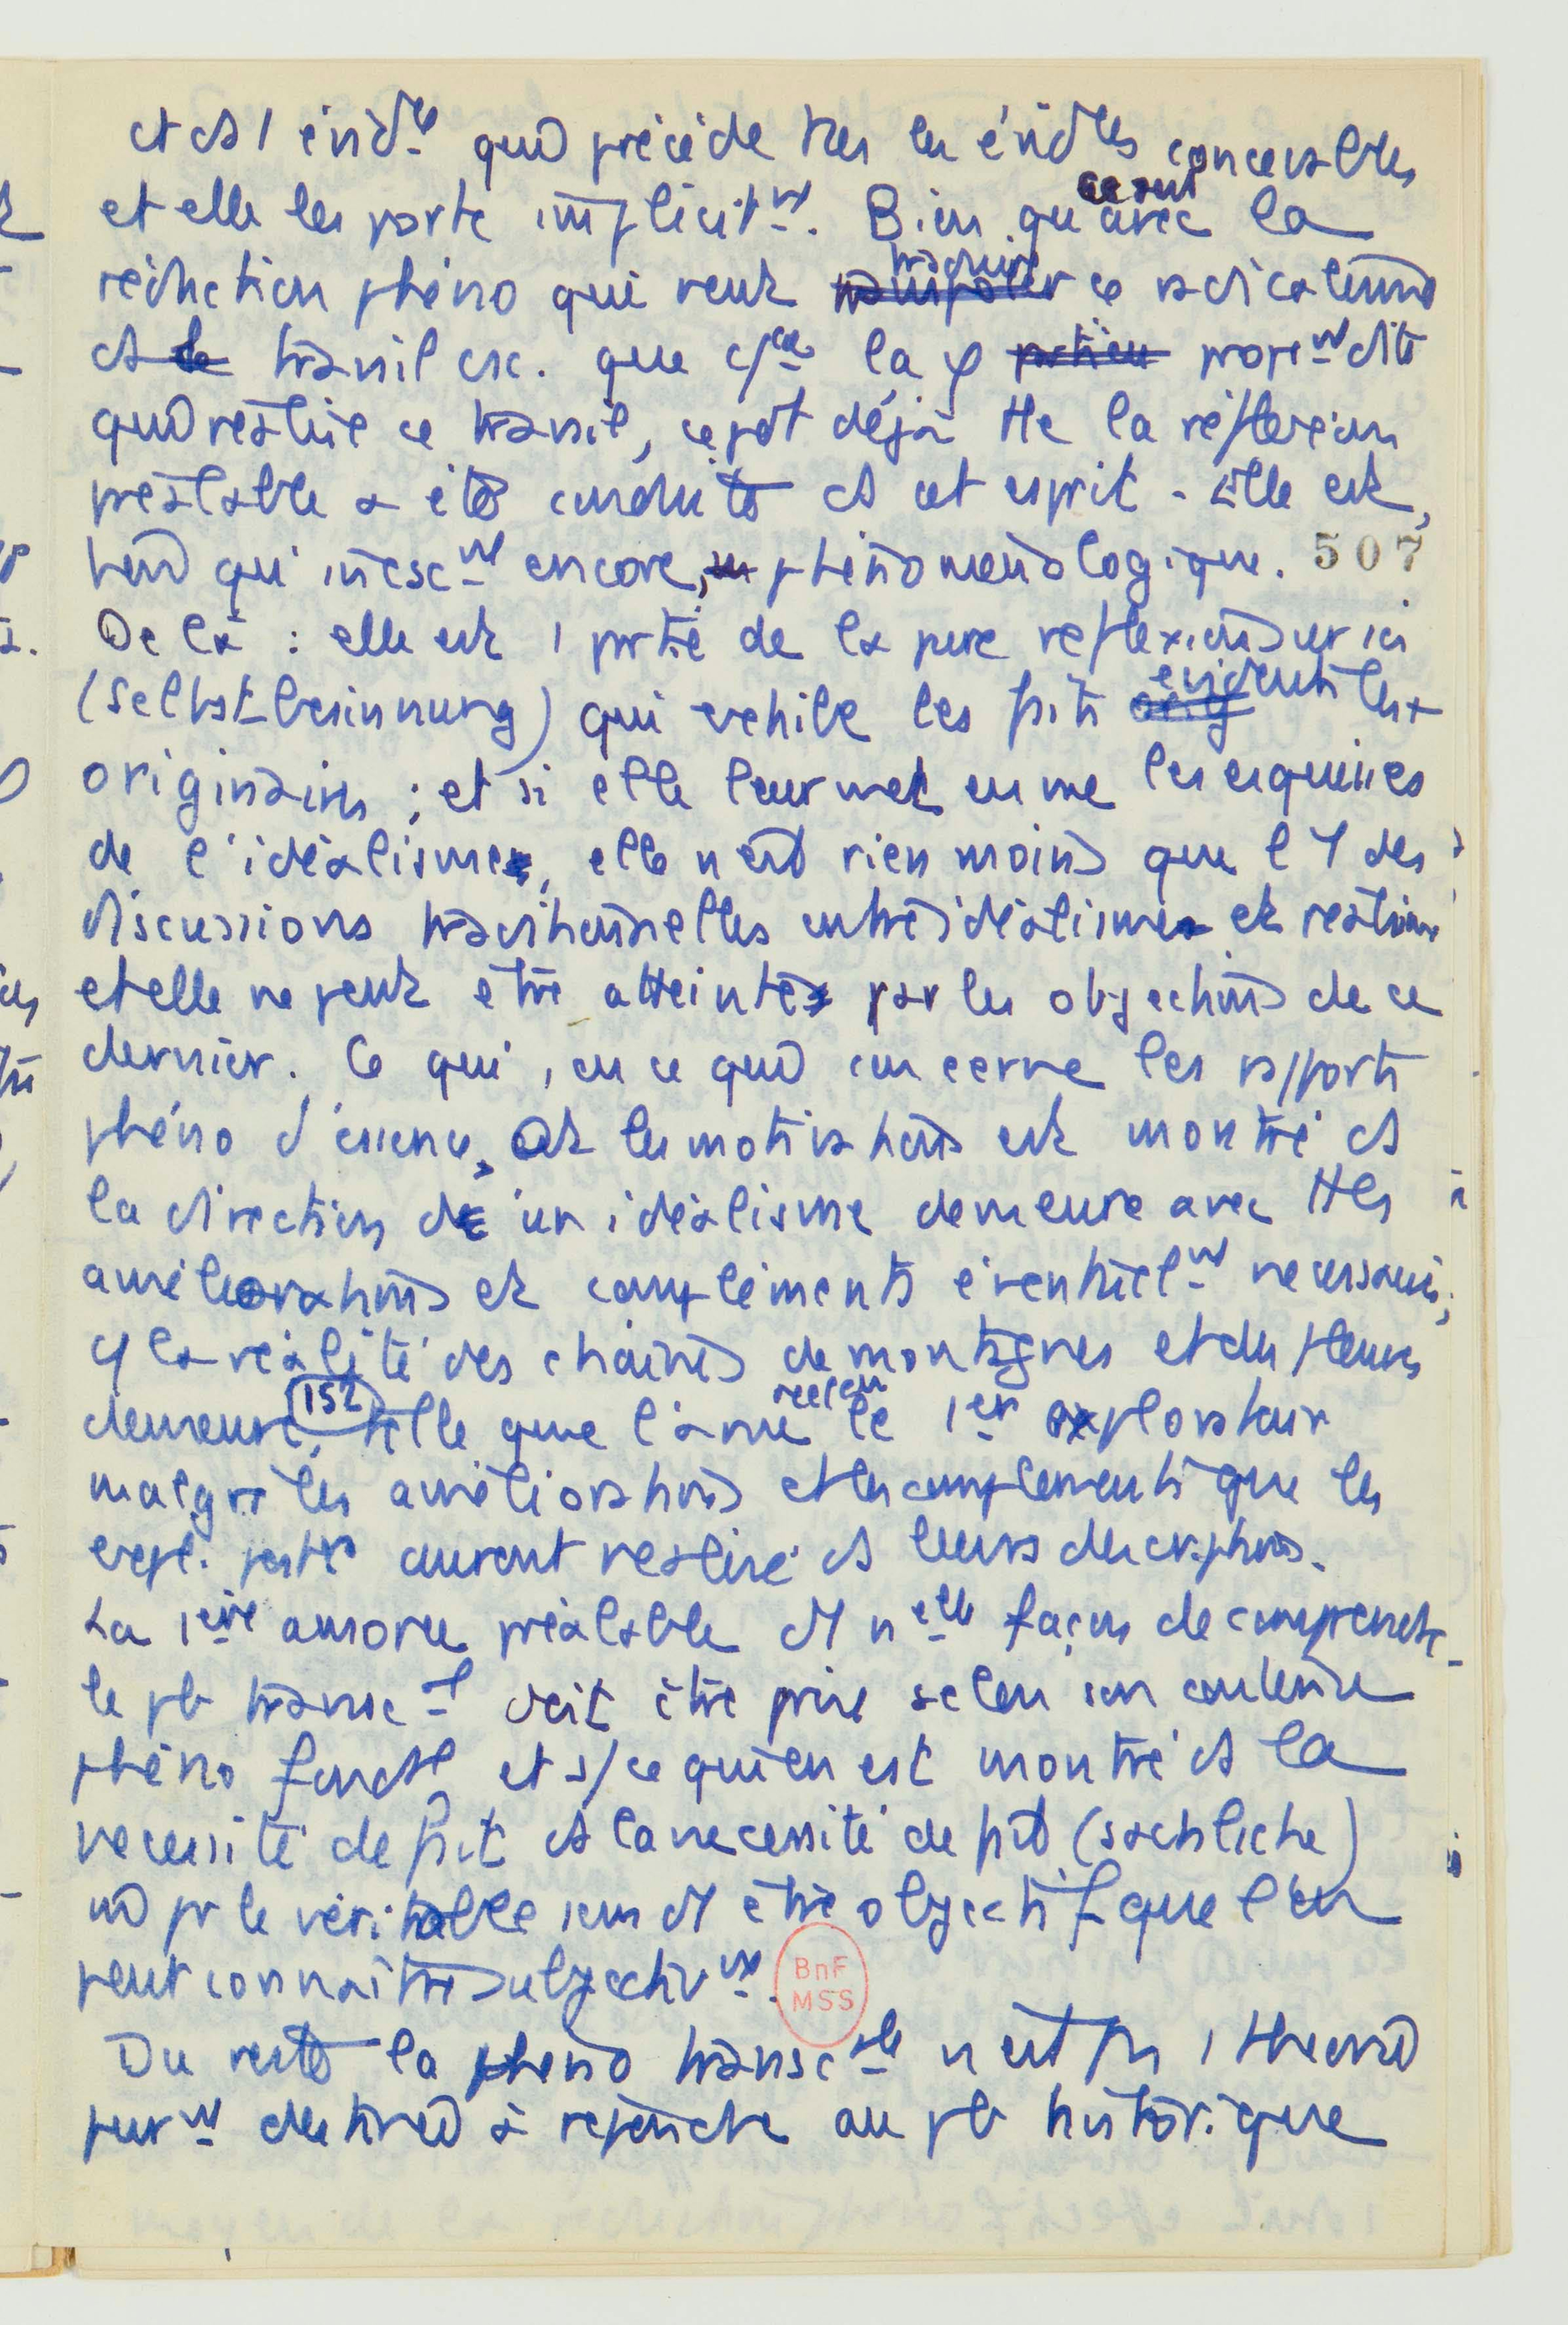 et ds 1 évidce qui précède ttes les évidces concevables
et elle les porte implicitmt. Bien que ce soit avec la
réduction phéno qui veut traduire ce radicalisme
ds le travail csc. que cce la φ proprmt dite
qui réalise ce travail, cepdt déjà tte la réflexion
préalable a été conduite ds cet esprit. Elle est,
bien qu'incscmt encore, phénoménologique. 507
De là : elle est 1 partie de la pure réflexion sur soi
(Selbstbesinnung) qui révèle les faits évidents les +
originaires ; et si elle leur met en vue les esquisses
de l'idéalisme, elle n'est rien moins que l'1 des
discussions traditionnelles entre idéalisme et réalisme
et elle ne peut être atteinte par les objections de ce
dernier. Ce qui, en ce qui concerne les rapports
phéno d'essence, et les motivations est montré ds
la direction de un idéalisme demeure avec ttes
améliorations et compléments éventuelmt nécessaires,
c/ la réalité des chaînes de montagnes et des fleuves
demeure, (152) telle que l'a vue réelemt le 1er explorateur
malgré les améliorations et les compléments que les
expl. postrs auront réalisé ds leurs descriptions.
La 1ère amorce préalable d'1 nelle façon de comprendre
le pb transcl doit être prise selon son contenu
phéno fondtl et s/ ce qui en est montré ds la
nécessité de fait ds la nécessité de fait (sachliche)
nd pr le véritable sens d'1 être objectif que l'on
peut connaître subjectivmt.
Du reste la phéno transcale n'est pas 1 théorie
purmt destinée à répondre au pb historique
BnF
MSS